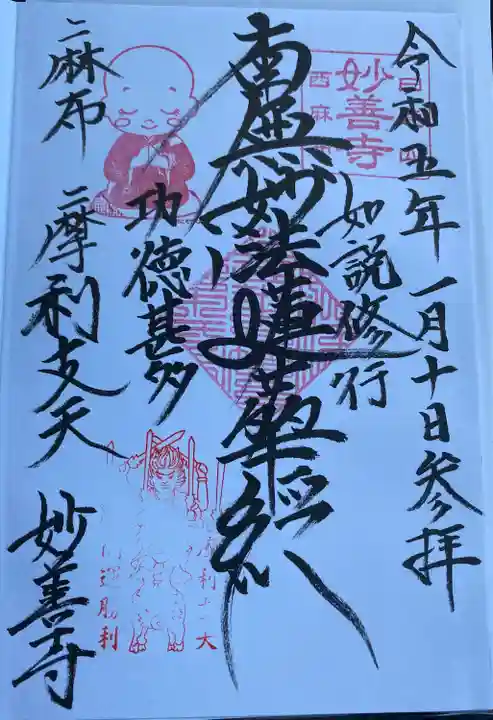 令和五年一月十日参拝
如説修行
南無妙法蓮華経
功徳甚多
二麻布 二摩利支天 妙善寺
妙善寺
西麻布
摩利支天
開運勝利